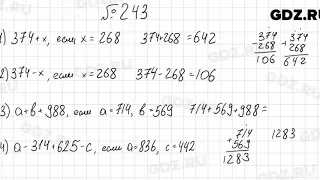 GDZ.RU
№243
1) 374+x, если x=268 374+268=642
374
-268
106
+374
268
642
2) 374-x, если x=268 374-268=106
3) a+b+988, если a=714, b=569 714+569+988=
4) a-314+625-c, если a=836, c=442
+714
569
1283
1283